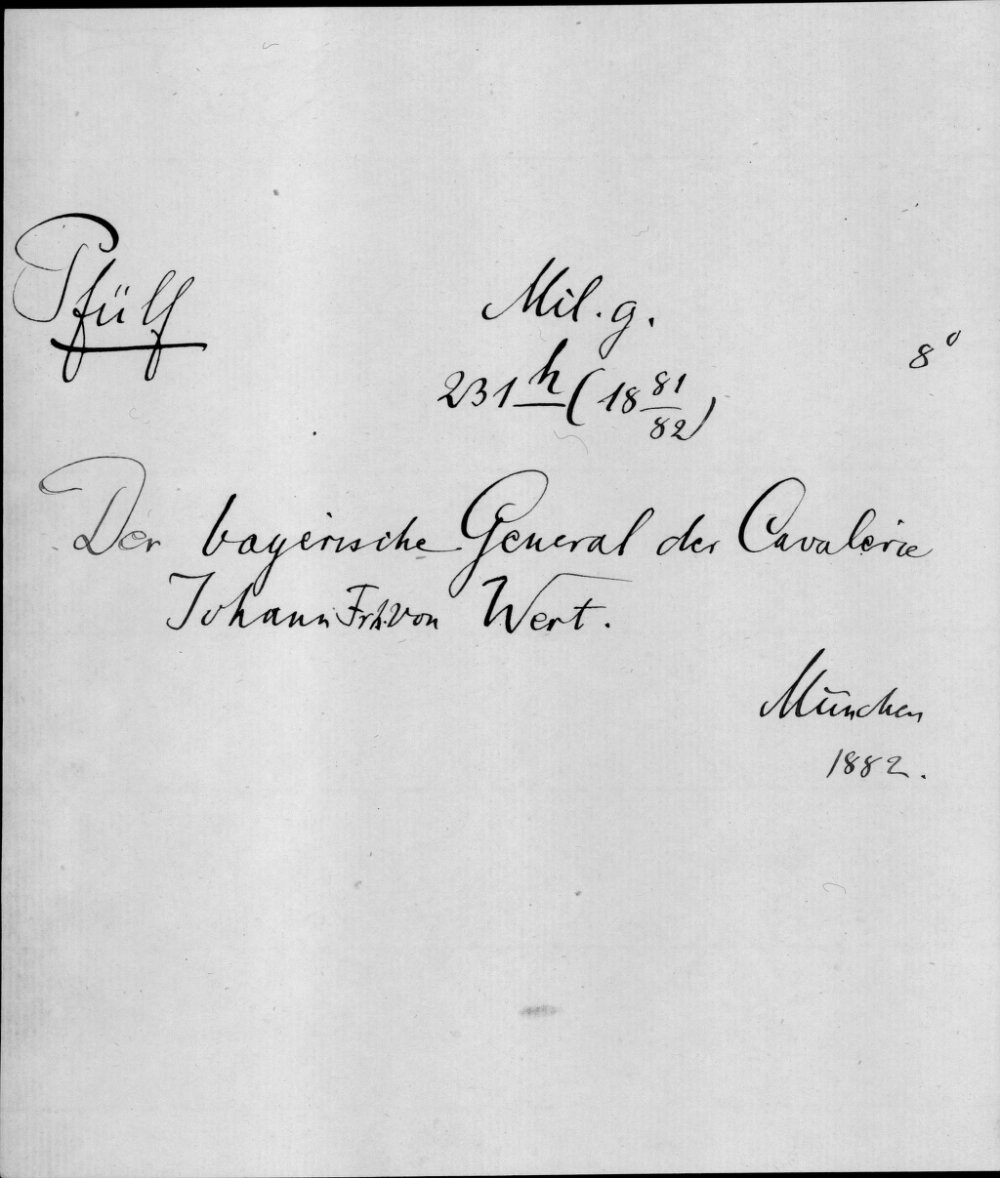 Pfülf
Mil. g.
8°
231 h (18 81/82)
Der bayerische General der Cavalerie
Johann Frh. von Wert.
München
1882.